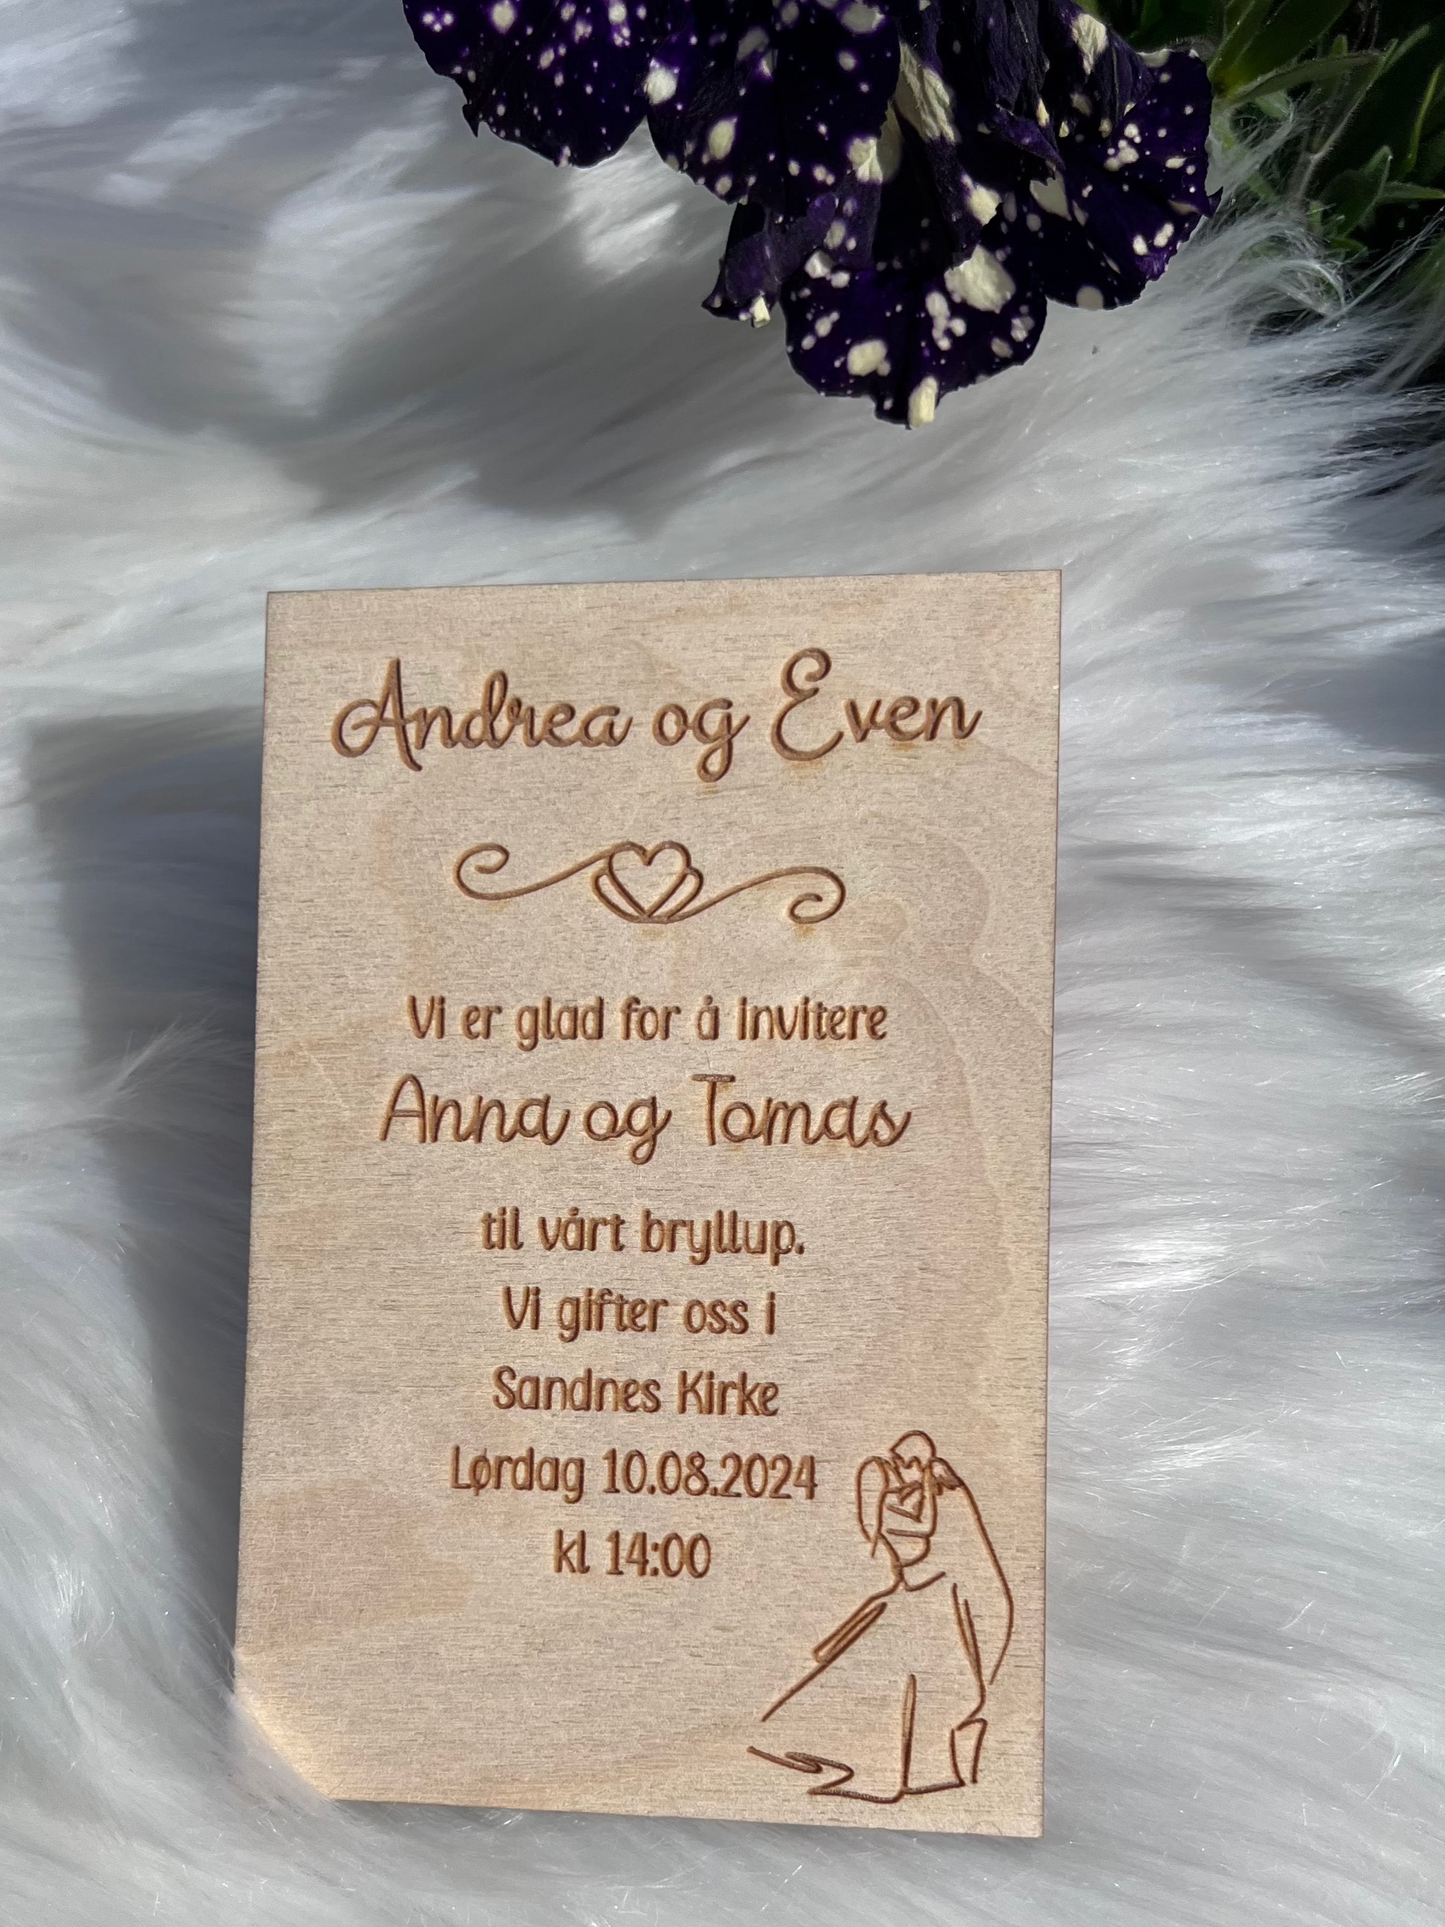 Andrea og Even
Vi er glad for å invitere
Anna og Tomas
til vårt bryllup.
Vi gifter oss i
Sandnes Kirke
Lørdag 10.08.2024
kl 14:00